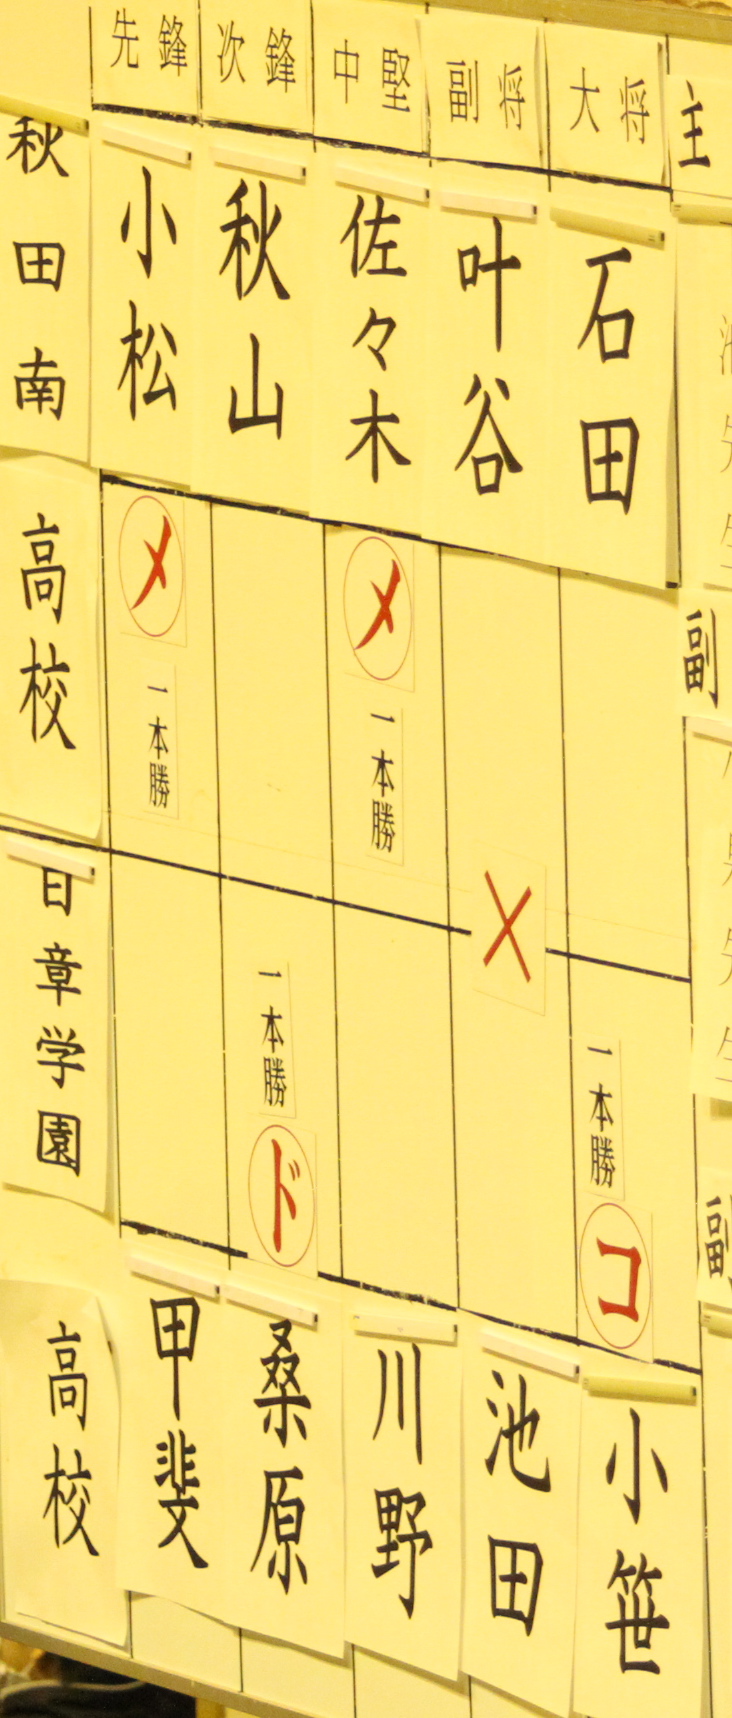 先鋒
次鋒
中堅
副将
大将
主
秋田南
高校
小松
秋山
佐々木
叶谷
石田
メ
一本勝
メ
一本勝
×
副
日章学園
高校
一本勝
ド
一本勝
コ
甲斐
桑原
川野
池田
小笹
副
先生
先生